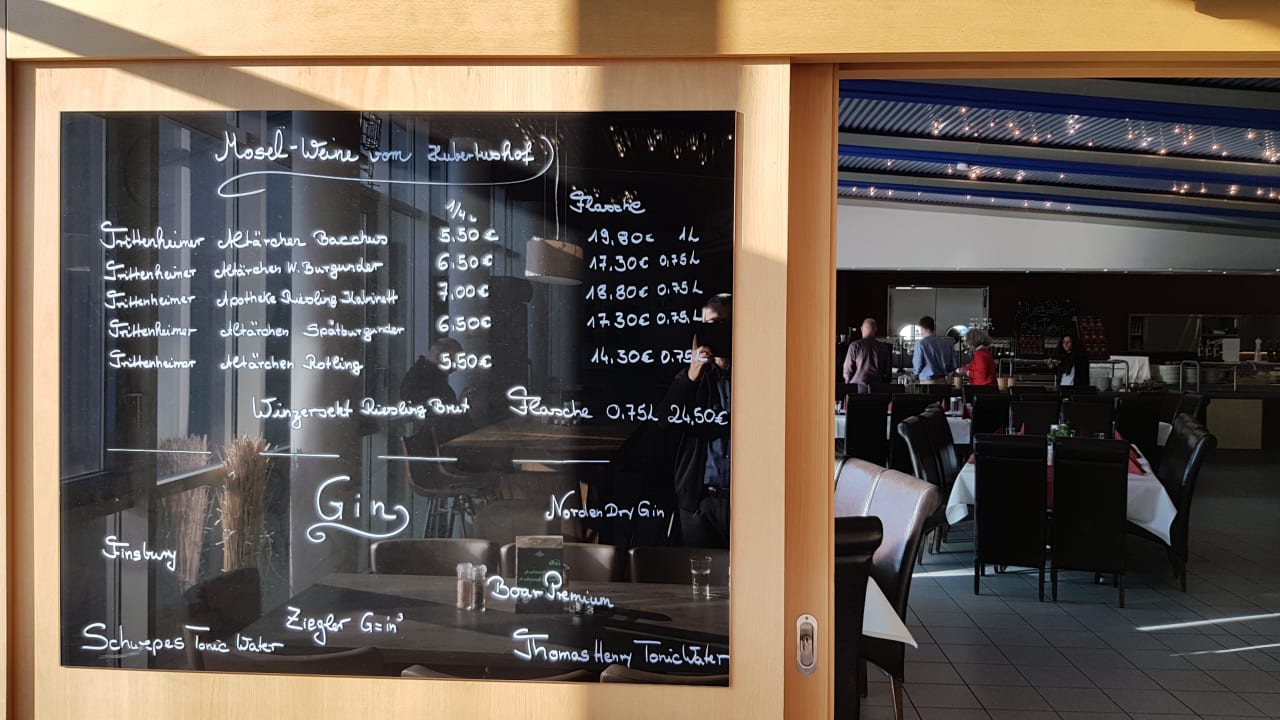 Mosel-Weine vom Hubertushof
1/4 L Flasche
Trittenheimer Altärchen Bacchus 5.50 € 19,80 € 1L
Trittenheimer Altärchen W. Burgunder 6.50 € 17,30 € 0,75 L
Trittenheimer Apotheke Riesling Kabinett 7,00 € 18.80 € 0,75 L
Trittenheimer Altärchen Spätburgunder 6,50 € 17.30 € 0,75 L
Trittenheimer Altärchen Rotling 5,50 € 14,30 € 0.75 L
Winzersekt Riesling Brut Flasche 0.75L 24,50 €
Gin
Norden Dry Gin
Finsbury
Boar Premium
Ziegler G=in³
Schwepes Tonic Water
Thomas Henry Tonic Water